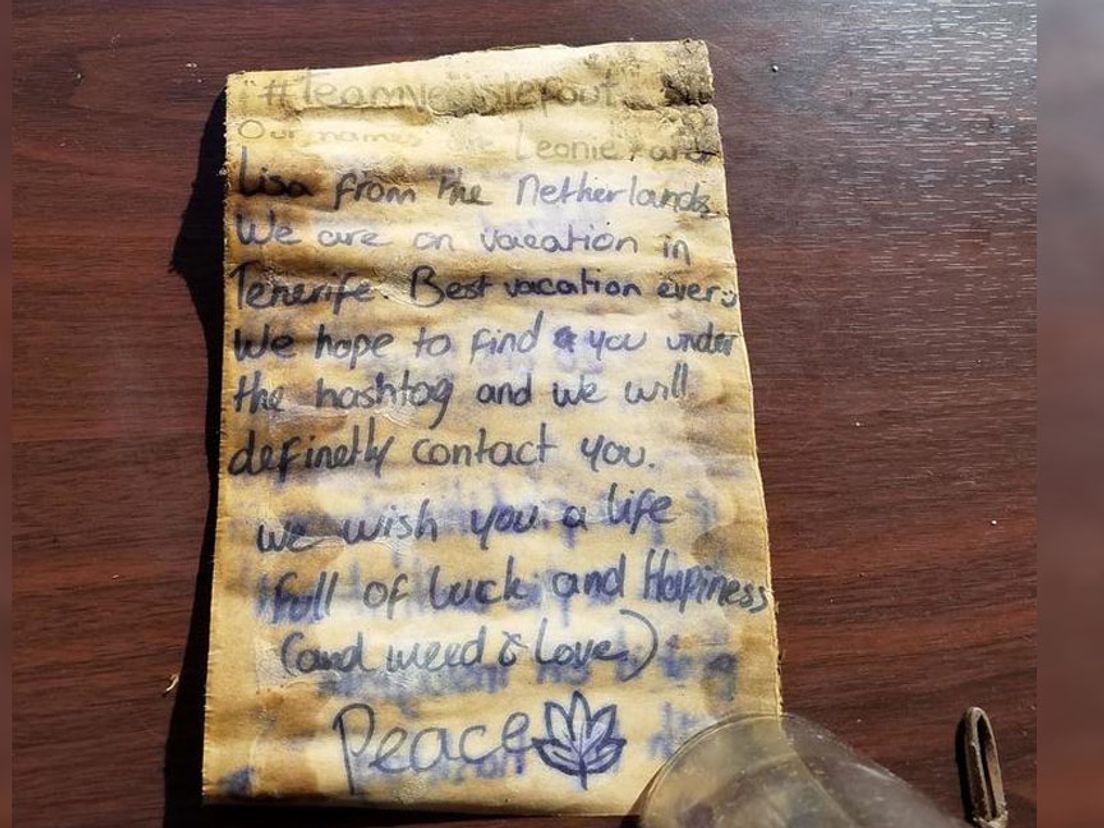 Our names are Leonie and
Lisa from the Netherlands
We are on vacation in
Tenerife. Best vacation ever :)
We hope to find you under
the hashtag and we will
definetly contact you.
we wish you a life
full of luck and Hapiness
(and weed & Love)
Peace